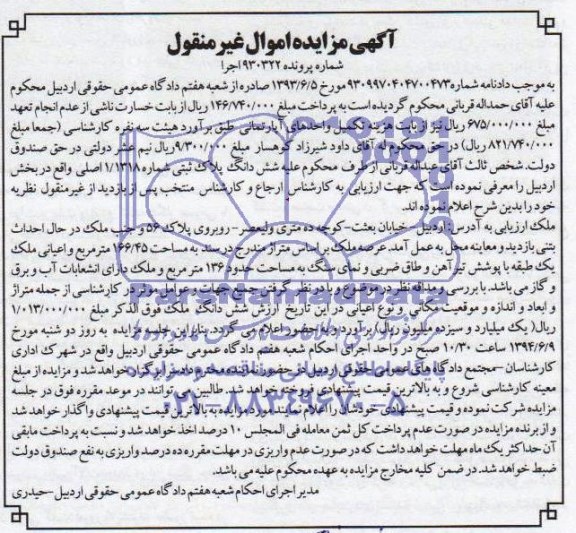 آگهی مزایده اموال غیر منقول
شماره پرونده ۹۳۰۳۲۲ اجرا
به موجب دادنامه شماره ۹۳۰۹۹۷۰۴۰۴۷۰۰۴۷۳ مورخ ۱۳۹۳/۶/۵ صادره از شعبه هفتم دادگاه عمومی حقوقی اردبیل محکوم
علیه آقای حمداله قربانی محکوم گردیده است به پرداخت مبلغ ۱۴۶/۷۴۰/۰۰۰ ریال از بابت خسارت ناشی از عدم انجام تعهد
مبلغ ۶۷۵/۰۰۰/۰۰۰ ریال نیز از بابت هزینه تکمیل واحدهای آپارتمانی طبق برآورد هیئت سه نفره کارشناسی (جمعا مبلغ
۸۲۱/۷۴۰/۰۰۰ ریال) در حق محکوم له آقای داود شیرزاد کوهسار مبلغ ۹/۳۰۰/۰۰۰ ریال نیم عشر دولتی در حق صندوق
دولت. شخص ثالث آقای عبداله قربانی از طرف محکوم علیه شش دانگ پلاک ثبتی شماره ۱/۱۳۱۸ اصلی واقع در بخش
اردبیل را معرفی نموده است که جهت ارزیابی به کارشناس ارجاع و کارشناس منتخب پس از بازدید از غیر منقول نظریه
خود را بدین شرح اعلام نموده اند
ملک ارزیابی به آدرس: اردبیل- خیابان بعثت-کوچه ده متری ولیعصر- روبروی پلاک ۵۶ و جنب ملک در حال احداث
بتنی بازدید و معاینه محل به عمل آمد. عرصه ملک بر اساس متراژ مندرج در سند به مساحت ۱۶۶/۴۵ مترمربع و اعیانی ملک
یک طبقه با پوشش تیر آهن و طاق ضربی و نمای سنگ به مساحت حدود ۱۳۶ متر مربع و ملک دارای انشعابات آب و برق
و گاز می باشد. با بررسی و مداقه نظر در موضوع و با در نظر گرفتن جمیع جهات و عوامل موثر در کارشناسی از جمله متراژ
و ابعاد و اندازه و موقعیت مکانی و نوع اعیانی در این تاریخ ارزش شش دانگ ملک فوق الذکر مبلغ ۱/۰۱۳/۰۰۰/۰۰۰
ریال( یک میلیارد و سیزده میلیون ریال) برآورد و به حضور اعلام می گردد. بنابراین جلسه مزایده به روز دو شنبه مورخ
۱۳۹۴/۶/۹ ساعت ۱۰/۳۰ صبح در واحد اجرای احکام شعبه هفتم دادگاه عمومی حقوقی اردبیل واقع در شهرک اداری
کارشناسان -مجتمع دادگاه های عمومی حقوقی اردبیل در حضور نماینده محترم دادسرا برگزار خواهد شد و مزایده از مبلغ
معینه کارشناسی شروع و به بالاترین قیمت پیشنهادی فروخته خواهد شد. طالبین می توانند در موعد مقرره فوق در جلسه
مزایده شرکت نموده و قیمت پیشنهادی خودشان را اعلام نمایند مورد مزایده به بالاترین قیمت پیشنهادی واگذار خواهد شد
و از برنده مزایده در صورت عدم پرداخت کل ثمن معامله فی المجلس ۱۰ درصد اخذ خواهد شد و نسبت به پرداخت مابقی
آن حداکثر یک ماه مهلت خواهد داشت که در صورت عدم واریزی در مهلت مقرره ده درصد واریزی به نفع صندوق دولت
ضبط خواهد شد. در ضمن کلیه مخارج مزایده به عهده محکوم علیه می باشد.
مدیر اجرای احکام شعبه هفتم دادگاه عمومی حقوقی اردبیل-حیدری
ParsNamadData
۰۲۱-۸۸۳۴۹۶۷۰-۵